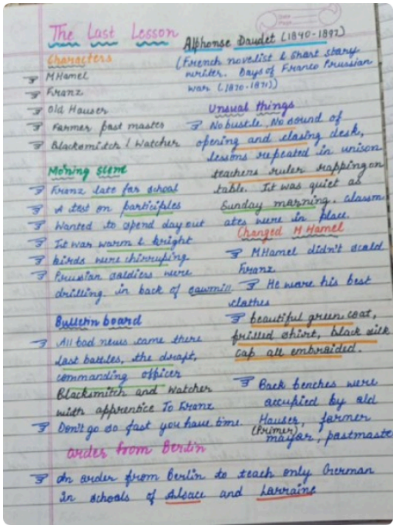 The Last Lesson
Characters
M Hamel
Franz
Old Hauser
Former post master
Blacksmith & Watcher
Morning scene
Franz late for school
A test on participles
Wanted to spend day out
It was warm & bright
birds were chirruping
Prussian soldiers were
drilling in back of sawmill
Bulletin board
All bad news came there
last battles, the draft,
commanding officer
Blacksmith and watcher
with apprentice To Franz
Don't go so fast you have time.
order from Berlin
An order from Berlin to teach only German
in schools of Alsace and Lorraine
Alphonse Daudet (1840-1897)
(French novelist & short story
writer. Days of Franco Prussian
war (1870-1871))
Unsual things
No bustle. No sound of
opening and closing desk,
lessons repeated in unison
teachers ruler rapping on
table. It was quiet as
Sunday morning, classm
ates were in place.
Changed M Hamel
M Hamel didn't scold
Franz
He wore his best
clothes
beautiful green coat,
frilled shirt, black silk
cap all embroided.
Back benches were
occupied by old
Hauser, former
(Primer)
mayor, postmaste